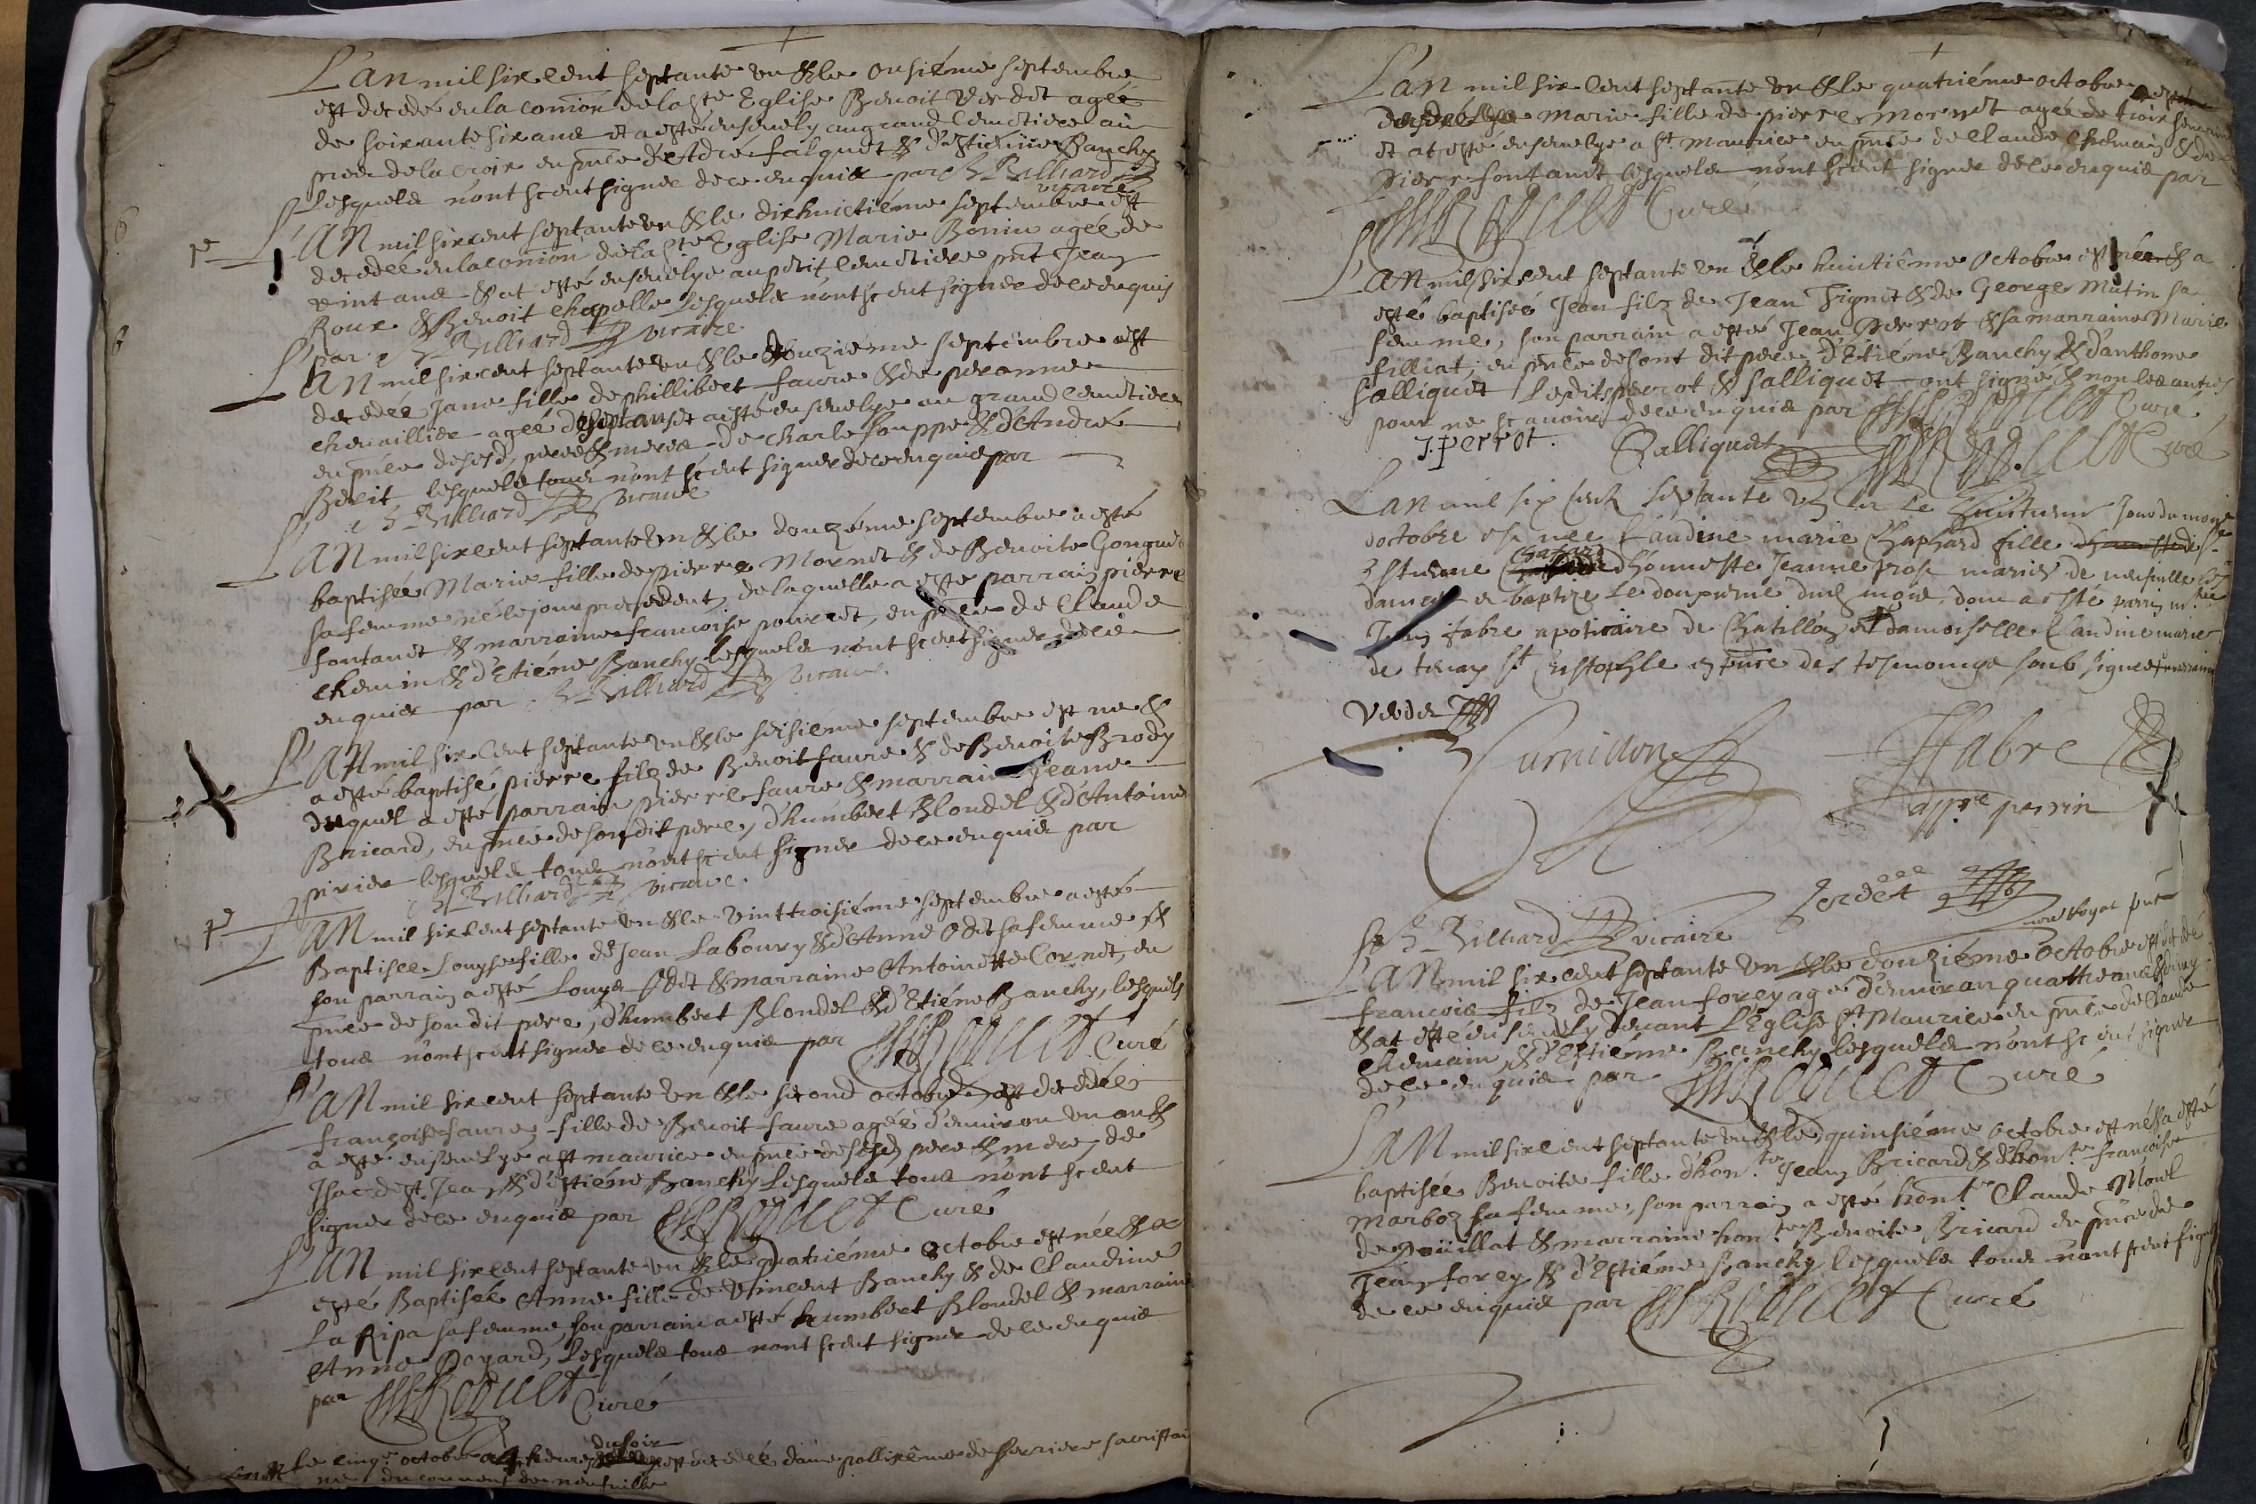 L'an mil six cent septante un & le onsiéme septembre
est decedé en la comion de la ste Eglise Benoit Verdet agée
de soixante six ans et a esté ensevely au grand cemetiere au
pied de la croix en pnce de Adre falquet & d'Estienne Banchy
lesquels n'ont sceut signer de ce enquis par B Billiard
vicaire
L'an mil six cent septante un & le dixhuictiéme septembre est
decedée en la comion de la ste Eglise Marie Bonin agée de
vint ans & at esté ensevelye au petit cemetiere pnt Jean
Roux & Benoit chapelle lesquels n'ont sceut signer de ce enquis
par B Billiard vicaire
L'an mil six cent septante un & le douzieme septembre est
decedée Jane fille de phillibert faure & de peronne
chevaillier agée de sept ans et a esté ensevelye au grand cemetiere
en pnce de sesd. pere & mere de charle souppe & d'André
Benit lesquels tous n'ont sceut signer de ce enquis par
B Billiard vicaire
L'an mil six cent septante un & le douzéme septembre a esté
baptisée Marie fille de pierre Mornet & de Benoite Gonguet
sa femme née le jour precedent, de laquelle a esté parrain pierre
fontanet & marraine francoise pourret, en pnce de Claude
chemin & d'Etiéne Banchy lesquels n'ont sceut signer de ce
enquis par B Billiard vicaire
L'an mil six cent septante un & le seisieme septembre est né &
a esté baptisé pierre filz de Benoit faure & de Benoite Brody
duquel a esté parrain pierre faure & marraine Jeane
Bricard, en pnce de son dit pere, d'humbert Blondel & d'Antoine
pirier lesquels tous n'ont sceut signer de ce enquis par
B Billiard vicaire
L'an mil six cent septante un & le vinttroisiéme septembre a esté
Baptisée Louyse fille de Jean Laboury & d'Anne Odit sa femme &
son parrain a esté Louys Odit & marraine Antoinette Cornet, en
pnce de son dit pere, d'humbert Blondel & d'Etiéne Banchy, lesquels
tous n'ont sceut signer de ce enquis par Curé
L'an mil six cent septante un & le second octobre est decedée
françoise faure, fille de Benoit faure agée d'environ un an &
a esté ensevelye a st maurice en pnce de sesd. pere & mere, de
Isac de st Jean & d'Estiéne Banchy lesquels tous n'ont sceut
signer de ce enquis par Curé
L'an mil six cent septante un & le quatriéme octobre est née & a
esté Baptisée Anne fille de Vincent Banchy & de Claudine
La Ripa sa femme son parrain a esté humbert Blondel & marraine
Anne Poyard, lesquels tous n'ont sceut signer de ce enquis
par Curé
du soir
Le cinqe octobre a 4 heures est decedée dame pollixéme de ferriere sacristai
ne du couvent de neufville
L'an mil six cent septante un & le quatriéme octobre
decedée Marie fille de pierre Mornet agée de trois semaines
et at esté ensevelye a st maurice en pnce de Claude Chemain & de
pierre fontanet lesquels n'ont sceut signer de ce enquis par
Curé
L'an mil six cent septante un & le huictiéme octobre est né & a
esté baptisée Jean filz de Jean Signet & de George Mutin sa
femme, son parrain a esté Jean perrot & sa marraine Marie
filliat, en pnce de sont dit pere d'Etiéne Banchy & d'anthone
Salliquet Lesdits perrot & salliquet ont signé & non les autres
pour ne scavoir de ce enquis par Curé
J. perrot. Salliquet Curé
L'an mil six cent septante un & le huictieme Jour du mois
doctobre est nee Claudine marie Chaphard fille de sr
Estienne d'honneste Jeanne prost mariés de neufville
et baptize le douxieme dud. mois dont a esté parrin
Jean fabre apoticaire de Chatillon et damoiselle Claudine marie
de tenay st Cristophle en pnce des tesmoings soub signes
Verdet
Curnillon
JFabre
perrin
Jordet
B Billiard vicaire
L'an mil six cent septante un & le douziéme octobre est decedé
francois filz de Jean forey agé d'environ quattre ans
& at esté ensevely devant L'Eglise st Maurice en pnce de Claude
chemain & d'Estiéne Banchy lesquels n'ont sceut signer
de ce enquis par Curé
L'an mil six cent septante un & le quinsiéme octobre est née & a esté
baptisée Benoite fille d'hon.te Jean Bricard & d'hon.te francoise
Marboz sa femme, son parrain a esté hon.te Claude Monet
de & marraine hon.te Benoite Bricard en pnce de
Jean forey & d'Estiéne Banchy lesquels tous n'ont sceut signer
de ce enquis par Curé